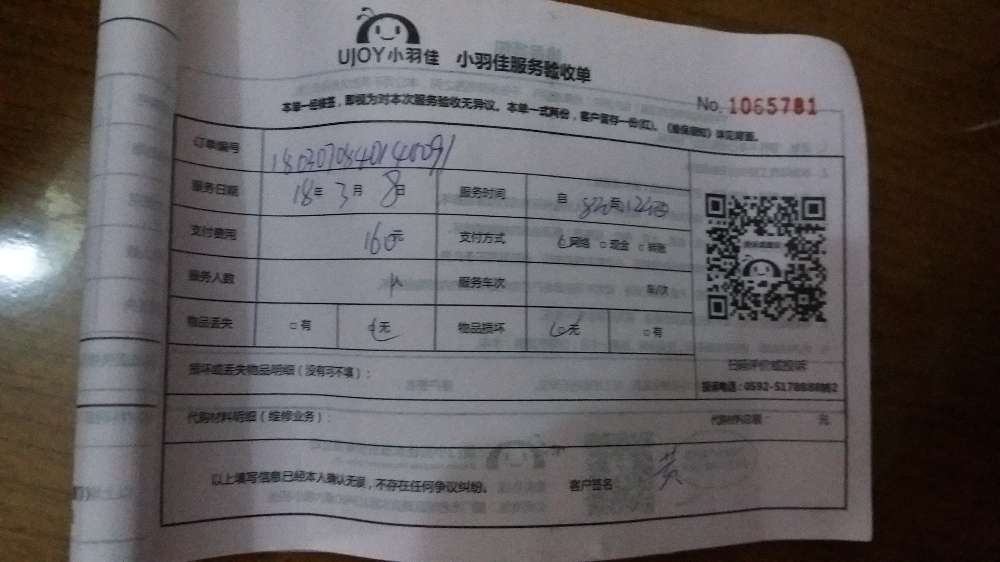 UJOY小羽佳 小羽佳服务验收单
No. 1065781
本单一经签签，即视为对本次服务验收无异议。本单一式两份，客户留存一份(红)。《维保须知》详见背面。
订单编号
服务日期 18年 3月 8日 服务时间 自
支付费用 160元 支付方式 网络 □ 现金 □ 转账
服务人数 人 服务车次 车/次
物品丢失 □ 有 无 物品损坏 无 □ 有
损坏或丢失物品明细（没有可不填）：
扫码评价或投诉
投诉电话：0592-5178888
代购材料明细（维修业务）： 代购材料总额： 元
以上填写信息已经本人确认无误，不存在任何争议纠纷。 客户签名 黄